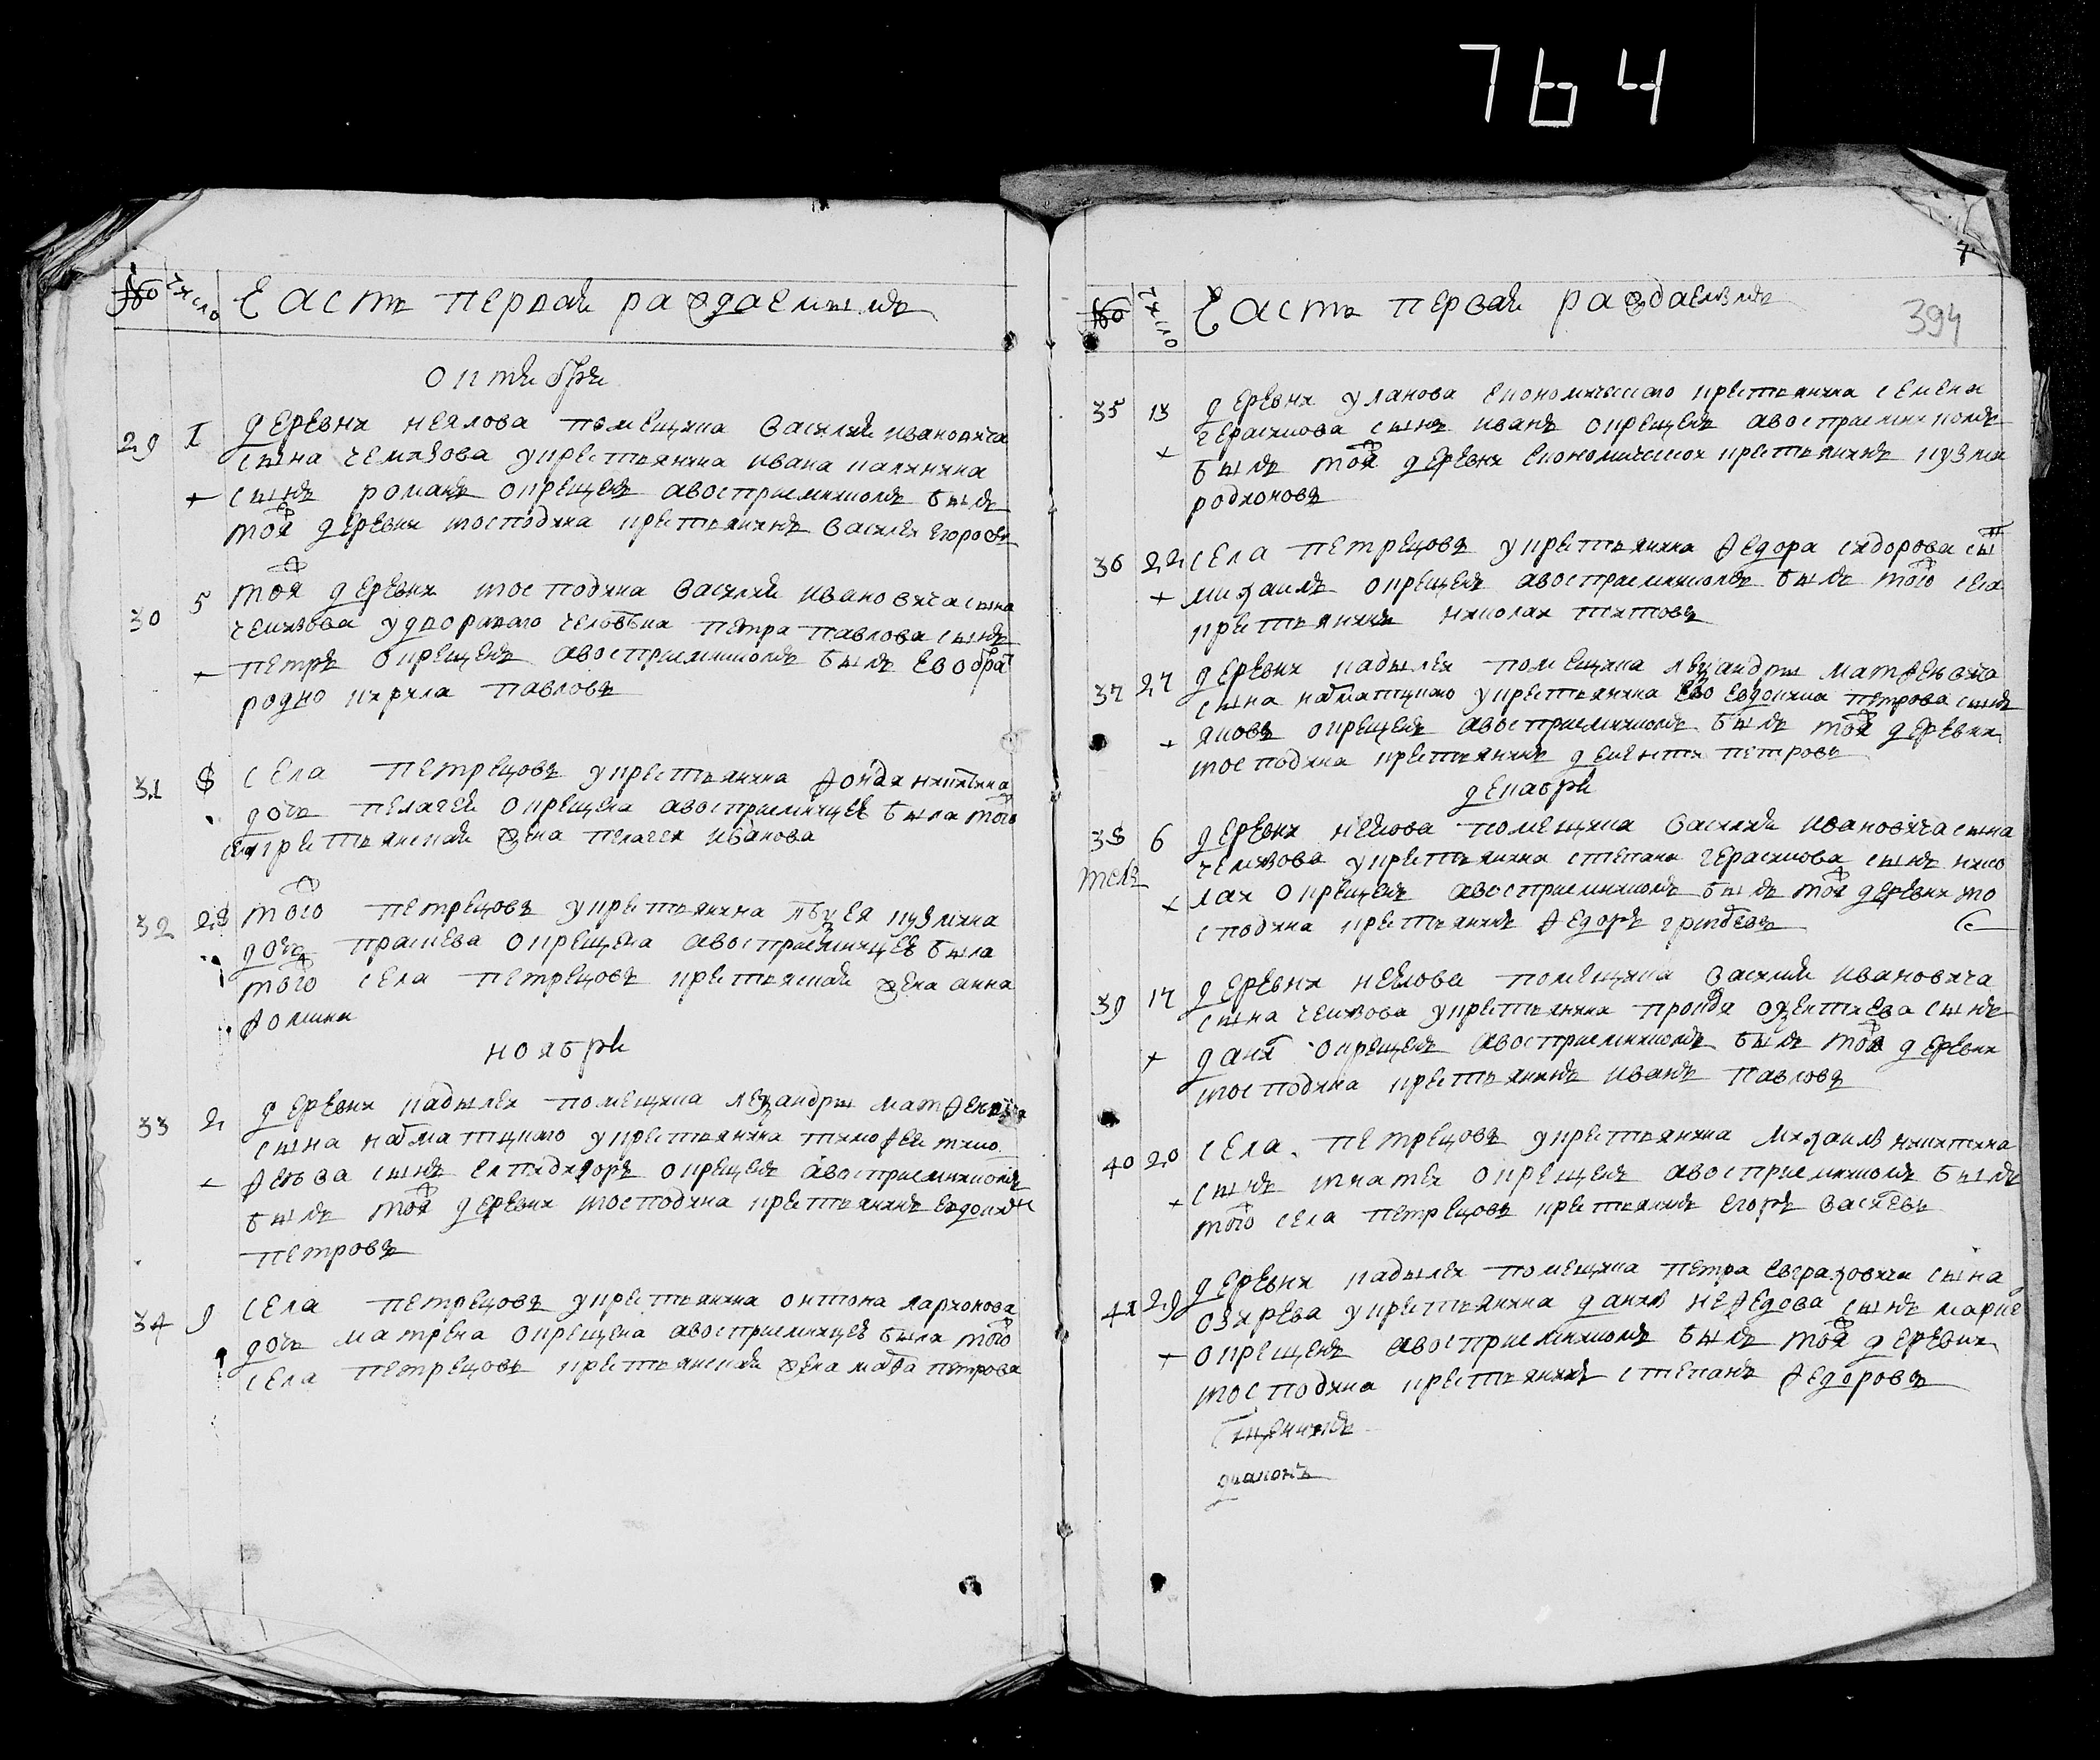 764
№ число Часть первая раждаемымъ
октября
29 1 деревни неялова помещика василия ивановича
сына чемизова у крестьянина ивана калинина
+ сынъ романъ окрещенъ а воспрпемникомъ былъ
тоя деревни господина крестьянинъ василеи егоровъ
30 5 тоя деревни господина василия ивановича сына
чемизова у дворового человека петра павлова сынъ
+ петръ окрещенъ а восприемникомъ былъ ево брат
родно кирила павловъ
31 8 села петрецовъ у крестьянина никитина
дочь пелагея окрещена а восприемницеи была того
села крестьянская жена пелагея иванова
32 28 того петрецовъ у крестьянина кузмина
дочь праскева окрещена а восприемницеи была
того села петрецовъ крестьяская жена анна
фомина
ноября
33 2 деревни кабылеи помещика лександры матфеевича
сына у крестьянина тимофея тимо
феева сынъ елпидифоръ окрещенъ а восприемникомъ
былъ тоя деревни господина крестьянинъ евдокимъ
петровъ
34 9 села петрецовъ у крестьянина онтона ларионова
дочь матрена окрещена а восприемницеи была того
села петрецовъ крестьянская жена петрова
7
№ число Часть первая раждаемымъ
394
35 13 деревни уланова економическаго крестьянина семена
герасимова сынъ иванъ окрещенъ а восприемникомъ
+ былъ тоя деревни економическои крестьянинъ кузма
родионовъ
36 22 села петрецовъ у крестьянина федора сидорова сын
+ михаилъ окрещенъ а восприемникомъ былъ того села
крестьянинъ николаи титовъ
37 27 деревни кабылеи помещика лександры матфеевича
сына у крестьянина ево евдокима петрова сынъ
+ яковъ окрещенъ а восприемникомъ былъ тоя деревни
господина крестьянинъ дементеи петровъ
декабря
38 6 деревни неелова помещика василия ивановича сына
чемизова у крестьянина степана герасимова сынъ нико
+ лаи окрещенъ а восприемникомъ былъ тоя деревни го
сподина крестьянинъ федоръ
39 17 деревни неелова помещика василия ивановича
сына чемизова у крестьянина сынъ
+ данил окрещенъ а восприемникомъ былъ тоя деревни
господина крестьянинъ иванъ павловъ
40 20 села петрецовъ у крестьянина михаила никитина
+ сынъ игнатеи окрещенъ а восприемникомъ былъ
того села петрецовъ крестьянинъ егоръ васильевъ
41 29 деревни кабылеи помещика петра евграфовича сына
озирева у крестьянина данила нефедова сынъ марке
+ окрещенъ а восприемникомъ былъ тоя деревни
господина крестьянинъ степанъ федоровъ
священникъ
диаконъ